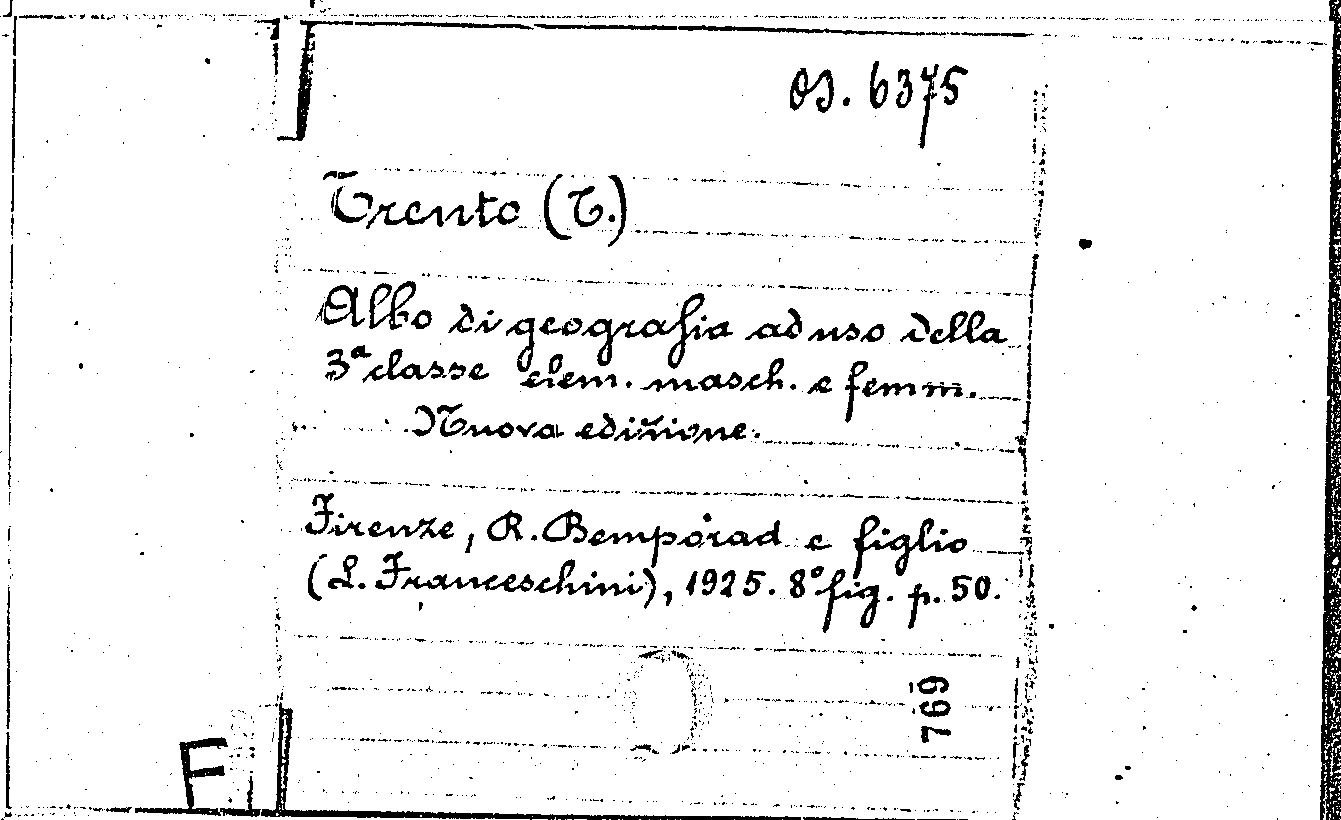 OS. 6375
Trento (T.)
Albo di geografia ad uso della
3ª classe elem. masch. e femm.
Nuova edizione.
Firenze, R. Bemporad e figlio
(L. Franceschini), 1925. 8° fig. p. 50.
769
F